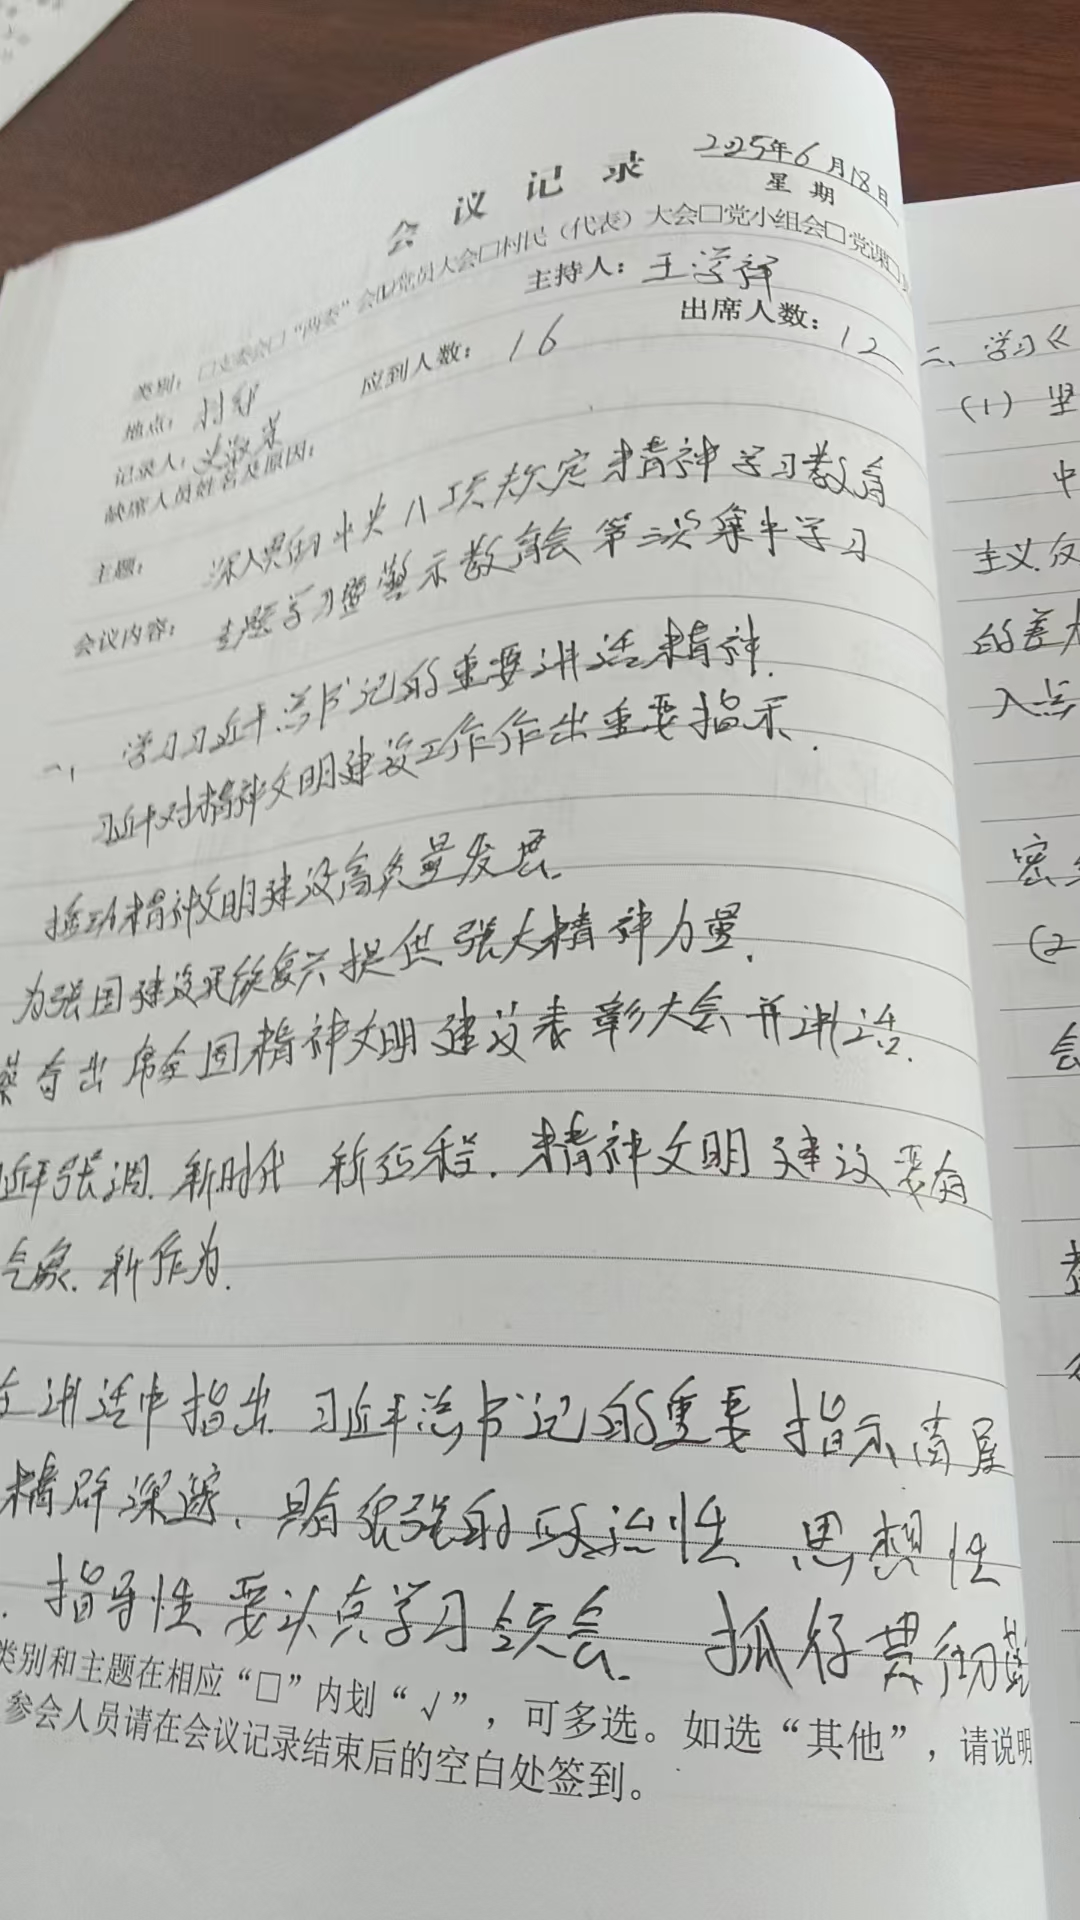 会议记录
2025年6月18日
星期
类别：□支委会□“两委”会☑党员大会□村民（代表）大会□党小组会□党课□
地点：村部 主持人：王学祥
记录人： 应到人数：16 出席人数：12
缺席人员姓名及原因：
主题：深入贯彻中央八项规定精神学习教育
会议内容：专题学习暨警示教育会第三次集中学习
一、学习习近平总书记的重要讲话精神.
习近平对精神文明建设工作作出重要指示.
推动精神文明建设高质量发展.
为强国建设民族复兴提供强大精神力量.
蔡奇出席全国精神文明建设表彰大会并讲话.
近平强调.新时代 新征程.精神文明建设要有
气象.新作为.
在讲话中指出.习近平总书记的重要指示高屋
精辟深邃、具有很强的政治性 思想性
.指导性 要认真学习领会. 抓好贯彻落
类别和主题在相应“□”内划“√”，可多选。如选“其他”，请说明
参会人员请在会议记录结束后的空白处签到。
二、学习《
（1）坚
中
主义.反
的
入点
密
（2
会